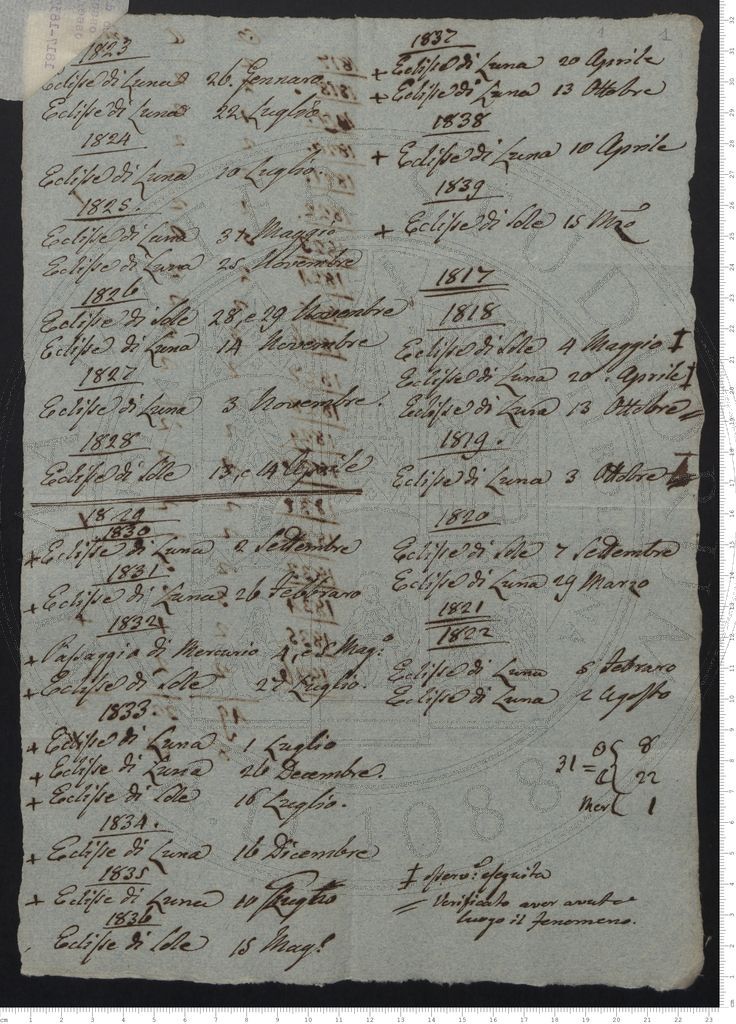 1823
Eclisse di Luna 26. Gennaro
Eclisse di Luna 22 Luglio
1824
Eclisse di Luna 10 Luglio.
1825.
Eclisse di Luna 31 Maggio
Eclisse di Luna 25 Novembre
1826
Eclisse di Sole 28, e 29 Novembre
Eclisse di Luna 14 Novembre
1827
Eclisse di Luna 3 Novembre.
1828
Eclisse di Sole 13, e 14 Aprile
1829
1830
+ Eclisse di Luna 2 Settembre
1831
+ Eclisse di Luna 26 Febbraro
1832
+ Passaggio di Mercurio 4, e 5 Mag.º
+ Eclisse di Sole 27 Luglio.
1833.
+ Eclisse di Luna 1 Luglio
+ Eclisse di Luna 26 Decembre.
+ Eclisse di Sole 16 Luglio.
1834.
+ Eclisse di Luna 16 Dicembre
1835
+ Eclisse di Luna 10
1836
Eclisse di Sole 15 Mag.º
1
1837
+ Eclisse di Luna 20 Aprile
+ Eclisse di Luna 13 Ottobre
1838
+ Eclisse di Luna 10 Aprile
1839
+ Eclisse di Sole 15 Mzo
1817
1818
Eclisse di Sole 4 Maggio ‡
Eclisse di Luna 20. Aprile ‡
Eclisse di Luna 13 Ottobre =
1819.
Eclisse di Luna 3 Ottobre
1820
Eclisse di Sole 7 Settembre
Eclisse di Luna 29 Marzo
1821
1822
Eclisse di Luna 6 Febraro
Eclisse di Luna 2 Agosto
31 = { 8
22
Mer 1
‡ eseguita
= Verificato aver avuto
luogo il fenomeno.